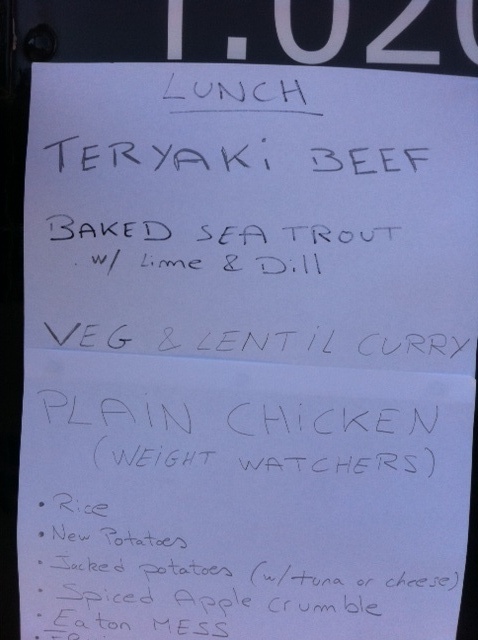 1.020
LUNCH
TERYAKi BEEF
BAKED SEA TROUT
w/ Lime & Dill
VEG & LENTiL CURRY
PLAiN CHiCKEN
(WEiGHT WATCHERS)
• Rice
• New Potatoes
• Jacked potatoes (w/ tuna or cheese)
• Spiced Apple crumble
• Eaton MESS